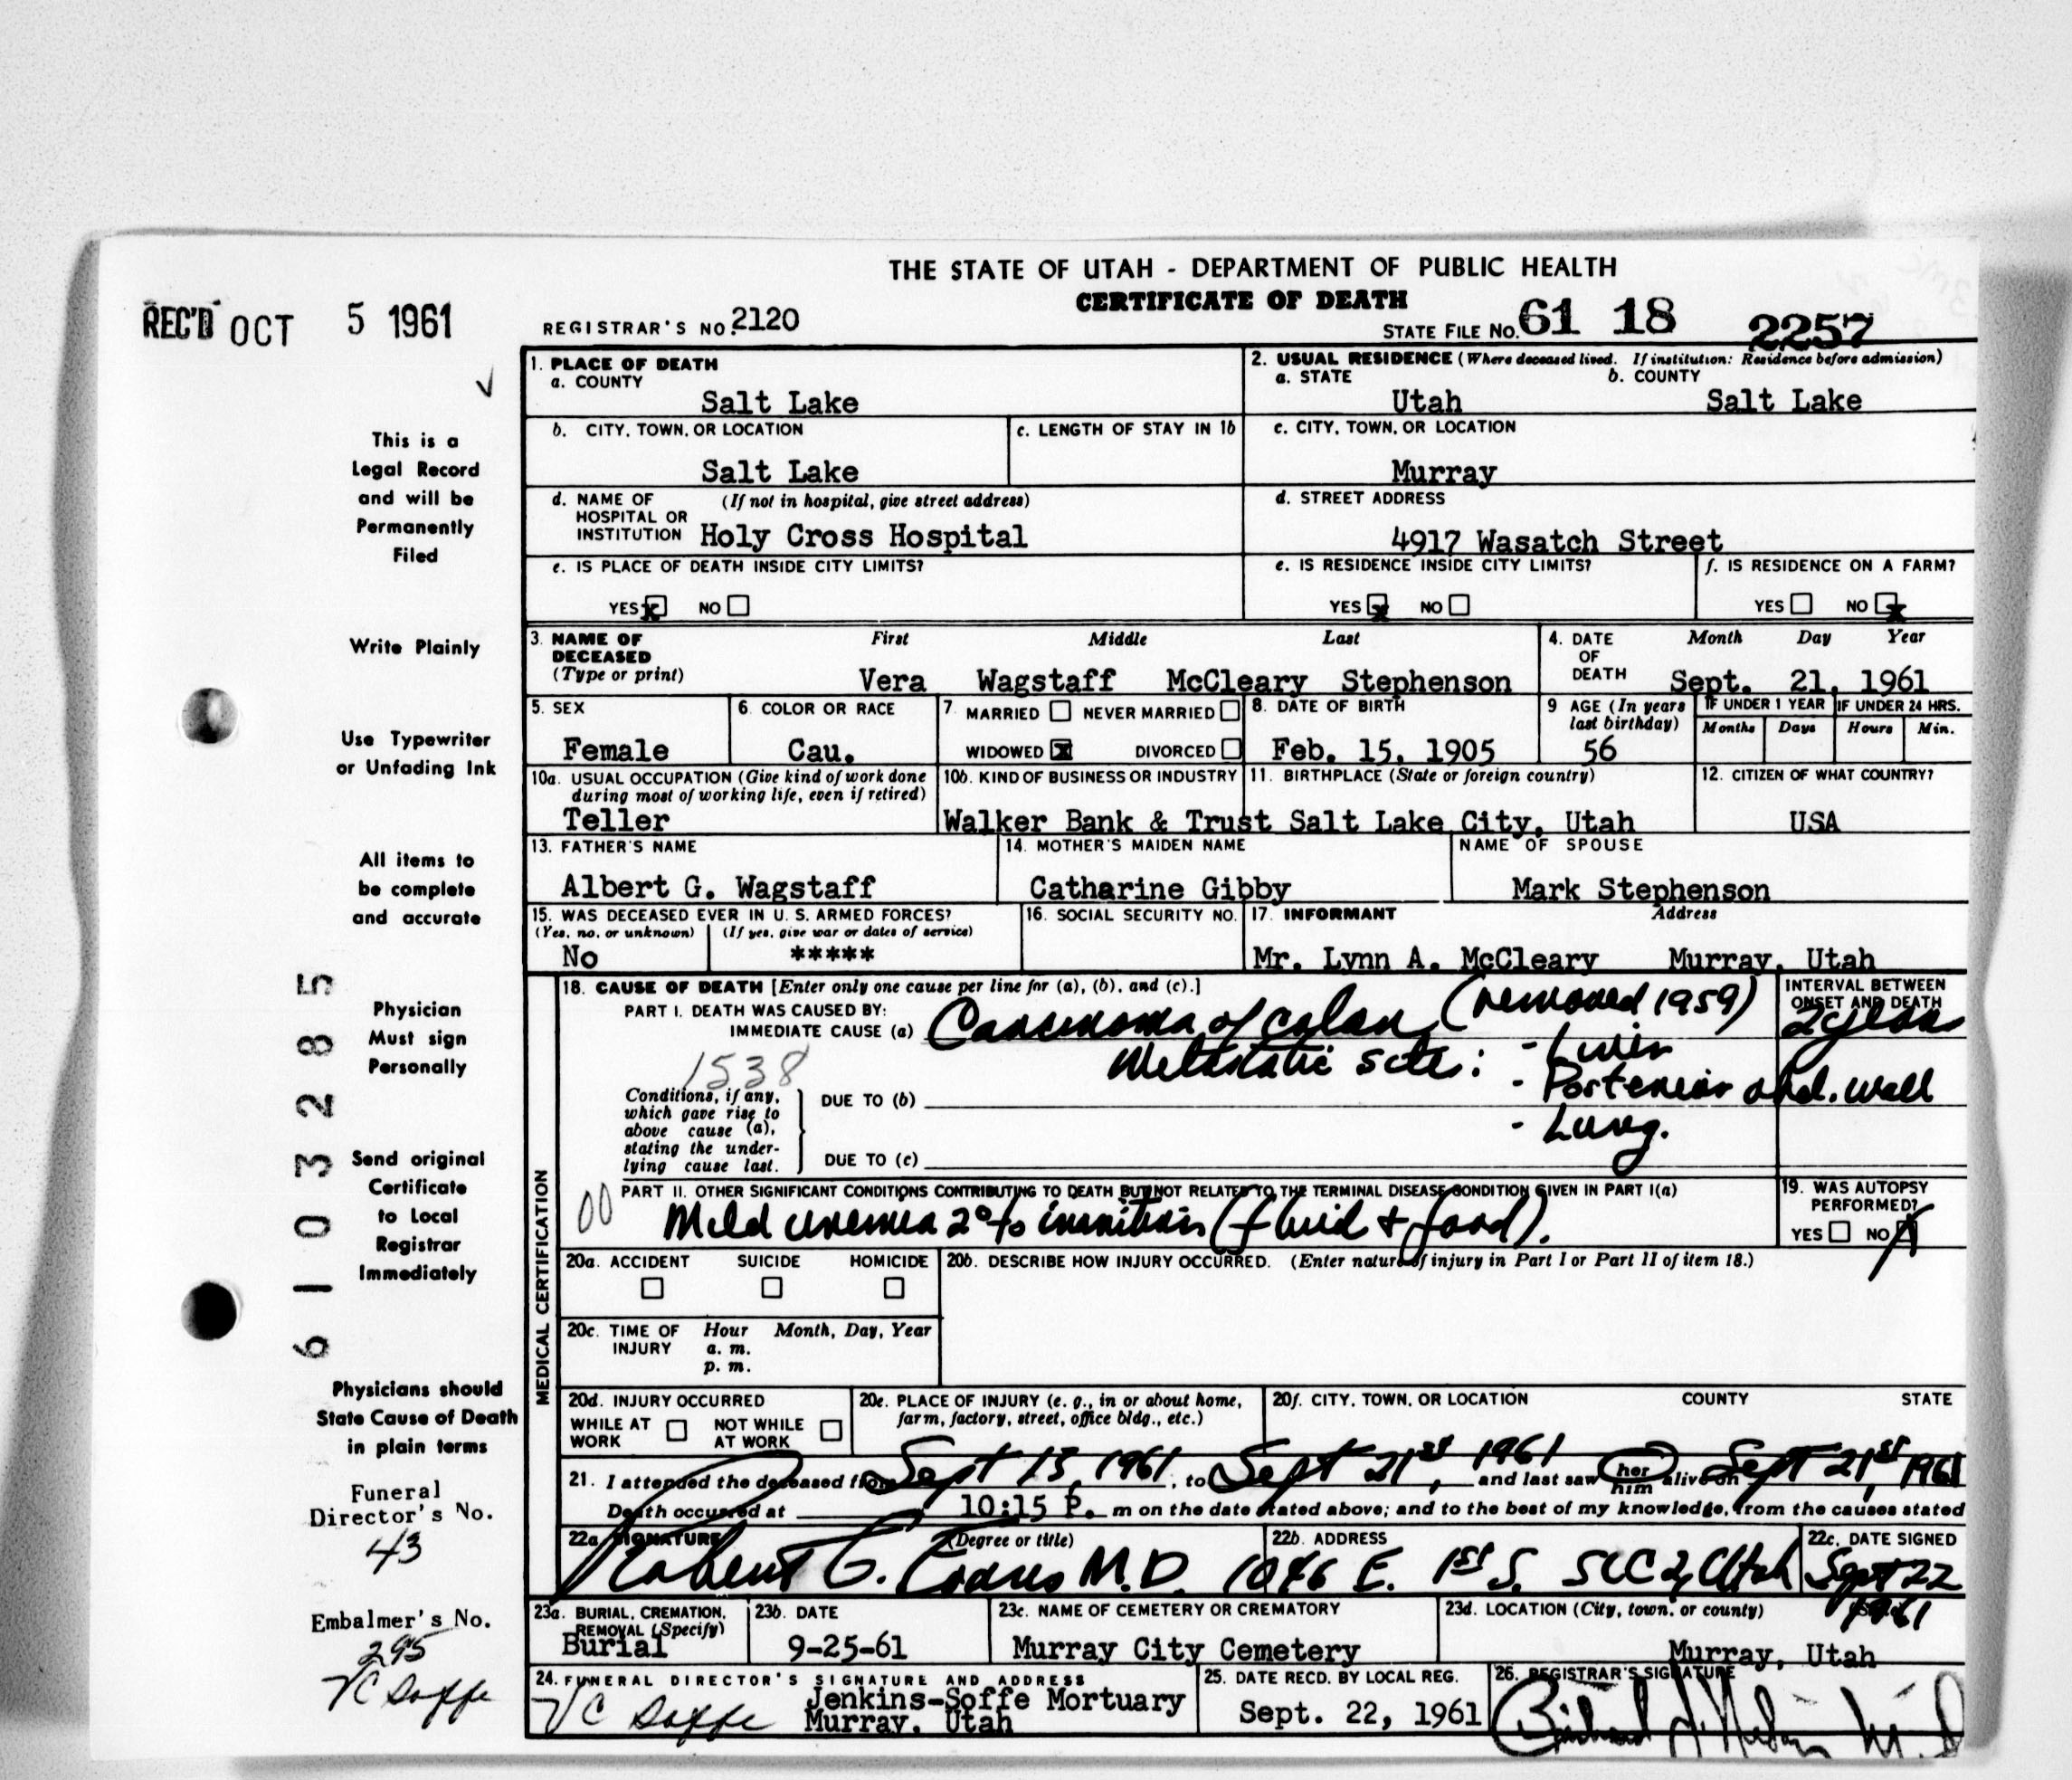 THE STATE OF UTAH - DEPARTMENT OF PUBLIC HEALTH
CERTIFICATE OF DEATH
REC'D OCT 5 1961
REGISTRAR'S NO. 2120
STATE FILE NO. 61 18 2257
✓
This is a
Legal Record
and will be
Permanently
Filed
Write Plainly
Use Typewriter
or Unfading Ink
All items to
be complete
and accurate
Physician
Must sign
Personally
Send original
Certificate
to Local
Registrar
Immediately
Physicians should
State Cause of Death
in plain terms
Funeral
Director's No.
43
Embalmer's No.
295
VC Soffe
61 03285
1. PLACE OF DEATH
a. COUNTY
Salt Lake
b. CITY, TOWN, OR LOCATION
Salt Lake
c. LENGTH OF STAY IN 1b
d. NAME OF HOSPITAL OR INSTITUTION (If not in hospital, give street address)
Holy Cross Hospital
e. IS PLACE OF DEATH INSIDE CITY LIMITS?
YES x NO
2. USUAL RESIDENCE (Where deceased lived. If institution: Residence before admission)
a. STATE b. COUNTY
Utah Salt Lake
c. CITY, TOWN, OR LOCATION
Murray
d. STREET ADDRESS
4917 Wasatch Street
e. IS RESIDENCE INSIDE CITY LIMITS?
YES x NO
f. IS RESIDENCE ON A FARM?
YES NO x
3. NAME OF DECEASED (Type or print) First Middle Last
Vera Wagstaff McCleary Stephenson
4. DATE OF DEATH Month Day Year
Sept. 21, 1961
5. SEX
Female
6. COLOR OR RACE
Cau.
7. MARRIED NEVER MARRIED
WIDOWED x DIVORCED
8. DATE OF BIRTH
Feb. 15, 1905
9 AGE (In years last birthday)
56
IF UNDER 1 YEAR IF UNDER 24 HRS.
Months Days Hours Min.
10a. USUAL OCCUPATION (Give kind of work done during most of working life, even if retired)
Teller
10b. KIND OF BUSINESS OR INDUSTRY
Walker Bank & Trust
11. BIRTHPLACE (State or foreign country)
Salt Lake City, Utah
12. CITIZEN OF WHAT COUNTRY?
USA
13. FATHER'S NAME
Albert G. Wagstaff
14. MOTHER'S MAIDEN NAME
Catharine Gibby
NAME OF SPOUSE
Mark Stephenson
15. WAS DECEASED EVER IN U. S. ARMED FORCES?
(Yes, no, or unknown) (If yes, give war or dates of service)
No *****
16. SOCIAL SECURITY NO.
17. INFORMANT Address
Mr. Lynn A. McCleary Murray, Utah
MEDICAL CERTIFICATION
18. CAUSE OF DEATH [Enter only one cause per line for (a), (b), and (c).]
PART I. DEATH WAS CAUSED BY:
IMMEDIATE CAUSE (a) Carcinoma of colon (removed 1959)
INTERVAL BETWEEN ONSET AND DEATH
2 years
1538
Metastatic site: - Liver
- Posterior abd. wall
- Lung.
Conditions, if any, which gave rise to above cause (a), stating the underlying cause last.
DUE TO (b)
DUE TO (c)
00
PART II. OTHER SIGNIFICANT CONDITIONS CONTRIBUTING TO DEATH BUT NOT RELATED TO THE TERMINAL DISEASE CONDITION GIVEN IN PART I(a)
Mild uremia 2° to inanition (fluid + food).
19. WAS AUTOPSY PERFORMED?
YES NO X
20a. ACCIDENT SUICIDE HOMICIDE
20b. DESCRIBE HOW INJURY OCCURRED. (Enter nature of injury in Part I or Part II of item 18.)
20c. TIME OF INJURY Hour Month, Day, Year
a. m.
p. m.
20d. INJURY OCCURRED
WHILE AT WORK NOT WHILE AT WORK
20e. PLACE OF INJURY (e. g., in or about home, farm, factory, street, office bldg., etc.)
20f. CITY, TOWN, OR LOCATION COUNTY STATE
21. I attended the deceased from Sept 13, 1961, to Sept 21st, 1961 and last saw her him alive on Sept 21st 1961
Death occurred at 10:15 P. m on the date stated above; and to the best of my knowledge, from the causes stated
22a. SIGNATURE (Degree or title)
Robert G. M.D.
22b. ADDRESS
1046 E. 1st S. SLC 2, Utah
22c. DATE SIGNED
Sept 22 1961
23a. BURIAL, CREMATION, REMOVAL (Specify)
Burial
23b. DATE
9-25-61
23c. NAME OF CEMETERY OR CREMATORY
Murray City Cemetery
23d. LOCATION (City, town, or county)
Murray, Utah
24. FUNERAL DIRECTOR'S SIGNATURE AND ADDRESS
VC Soffe Jenkins-Soffe Mortuary
Murray, Utah
25. DATE RECD. BY LOCAL REG.
Sept. 22, 1961
26. REGISTRAR'S SIGNATURE